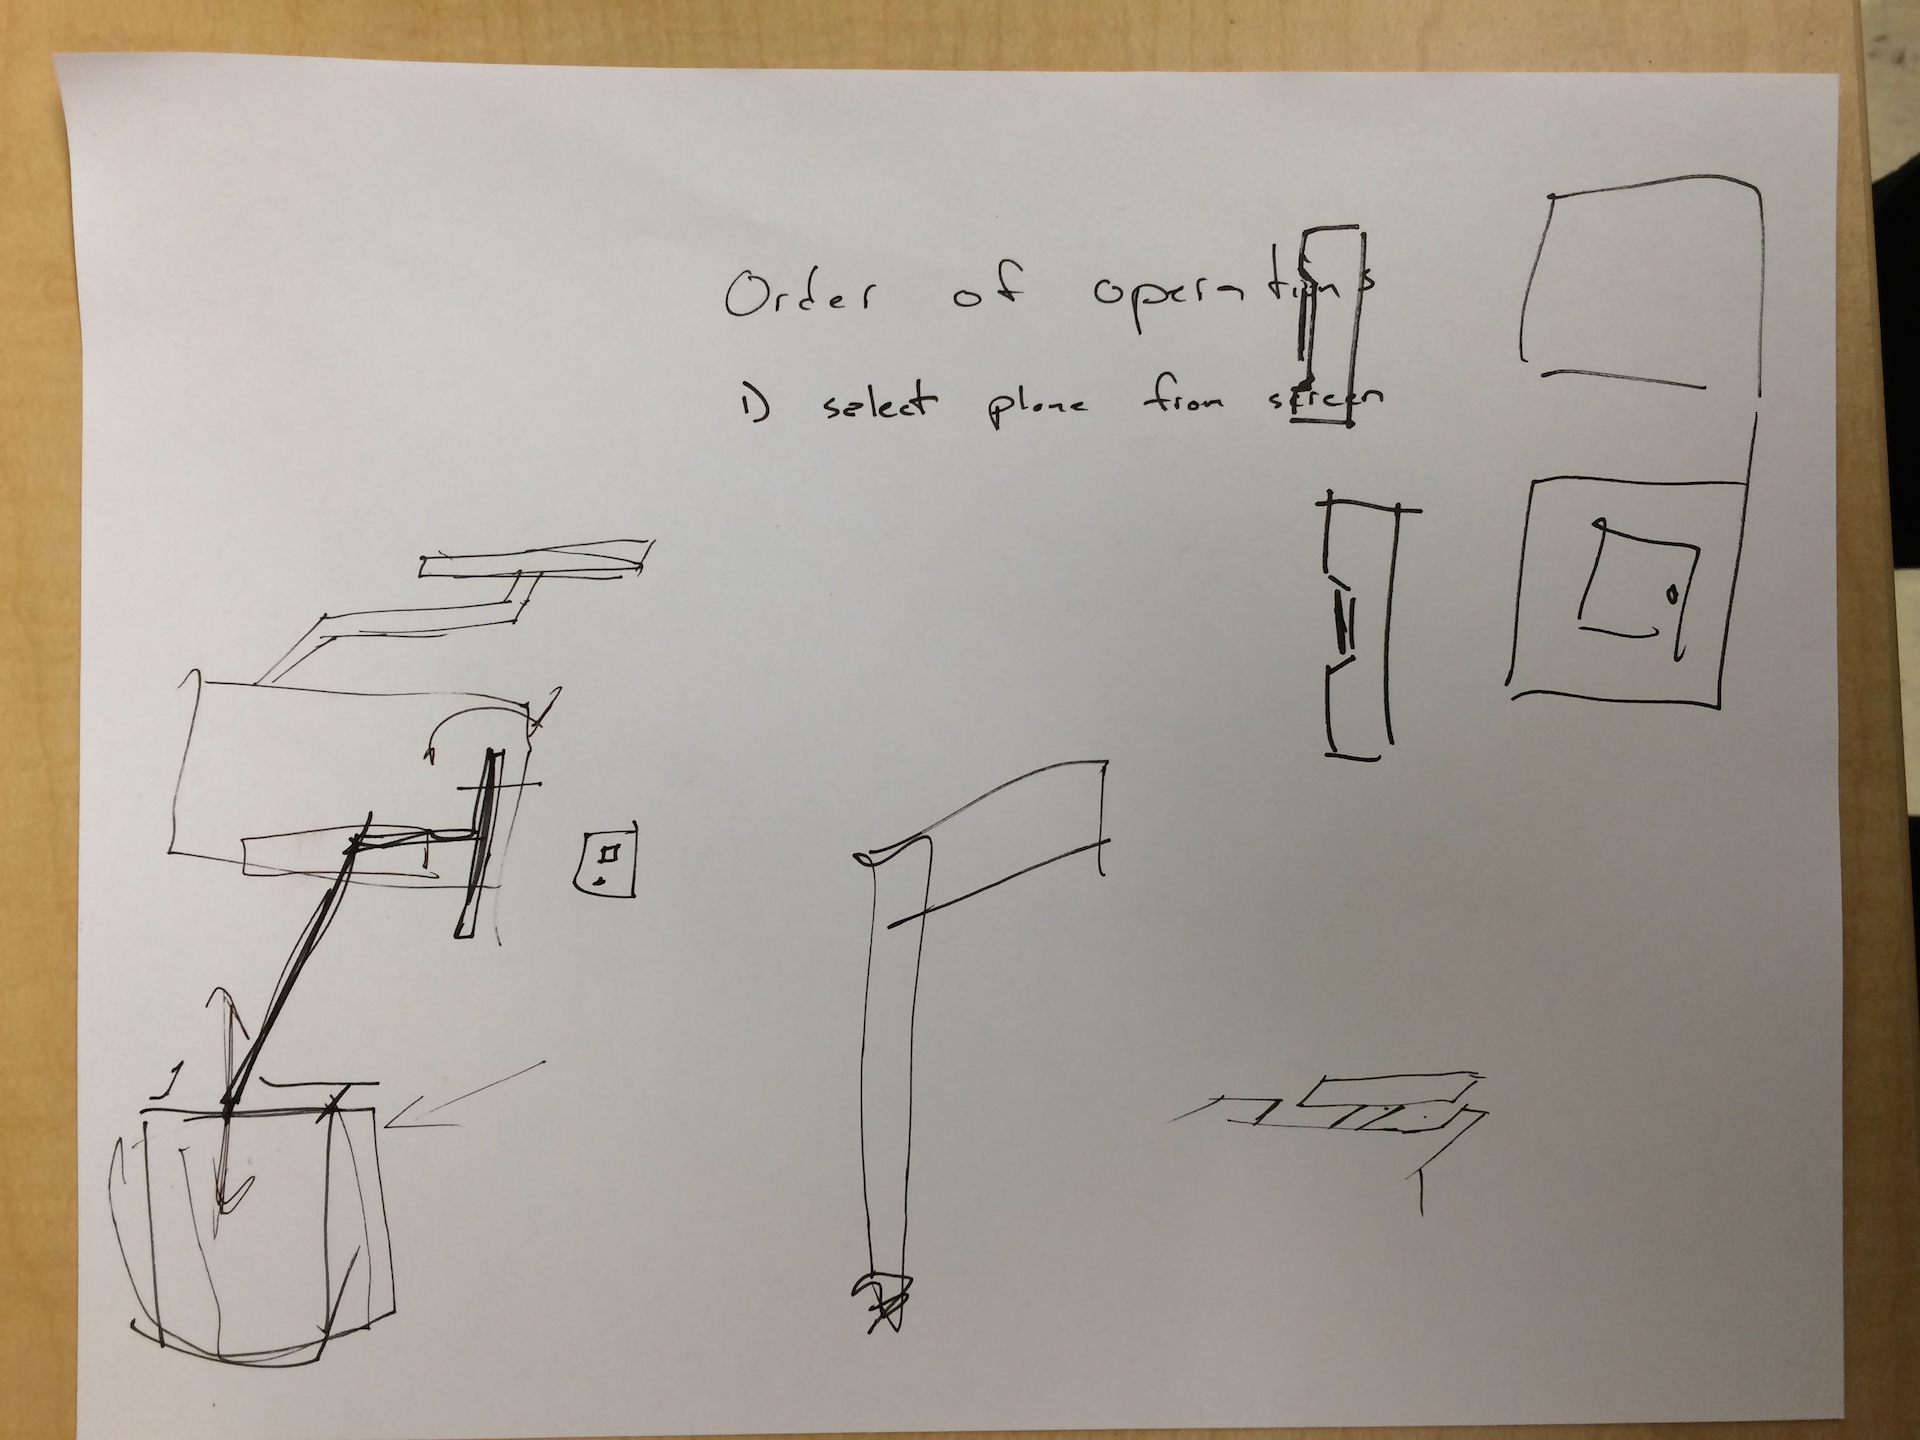 Order of operations
1) select plane from screen